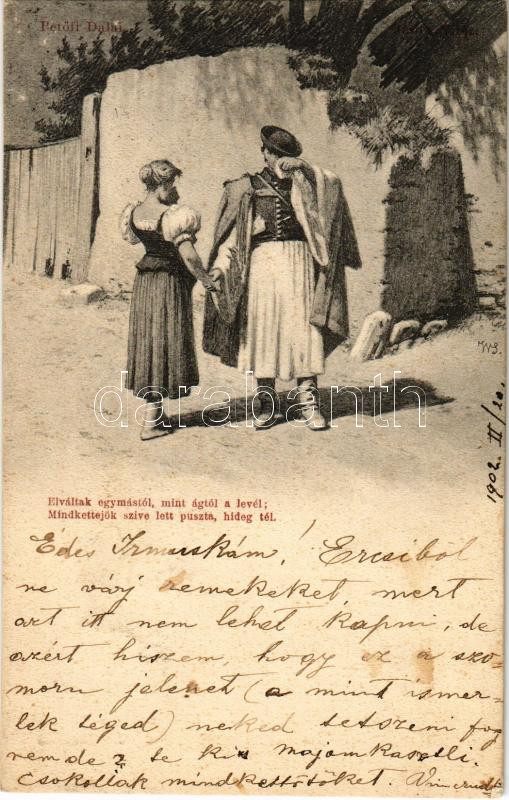 Petőfi Dalai.
WS.
darabanth
1902. II/20.
Elváltak egymástól, mint ágtól a levél;
Mindkettejök szive lett puszta, hideg tél.
Édes Irmuskám! Ercsiből
ne várj remekeket mert
azt itt nem lehet kapni, de
azért hiszem, hogy ez a szo-
moru jelenet (a mint ismer-
lek téged) neked tetszeni fog
nemde? te kis
Csokollak mindkettőtöket.